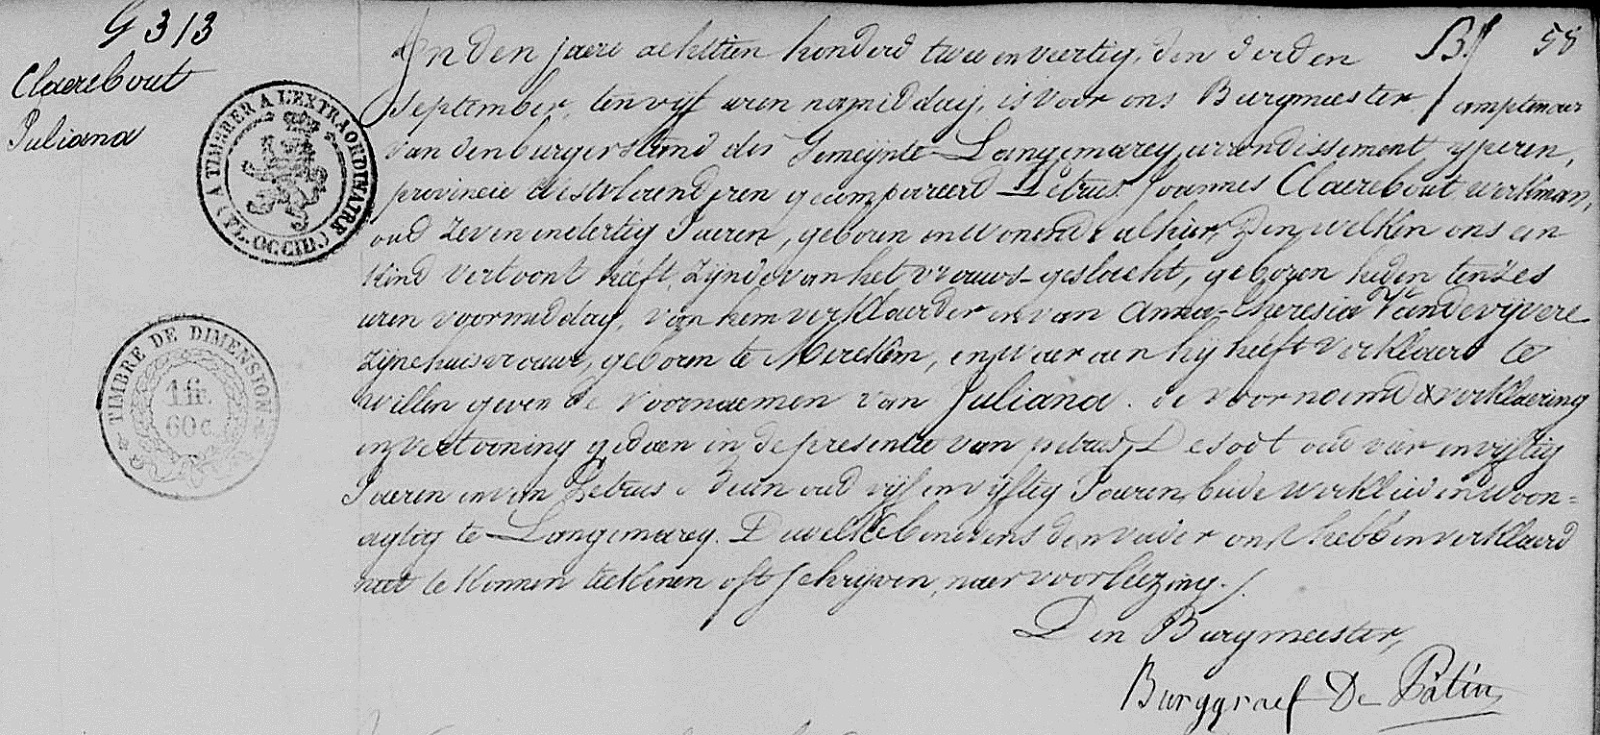 G 313
Claerebout
Juliana
A TIMBRER A L'EXTRAORDINAIRE
(FL. OCCID.)
TIMBRE DE DIMENSION
1 fr.
60 c.
58
In den jaere achttien honderd twee en veertig, den derden
September, ten vijf uren namiddag, is voor ons Burgmeester / amptenaer
van den burgerstand der Gemeijnte Langemarcq, arrondissement ijperen,
provincie Westvlaenderen gecompareerd Petrus Joannes Claerebout werkman,
oud zeven en dertig Jaeren, geboren en wonende alhier, den welken ons een
kind vertoont heeft, zijnde van het vrouws-geslacht, geboren heden ten zes
uren voormiddag, van hem verklaerder en van Anna-Theresia Vandevijvere
zijne huisvrouw, geboren te Merckem, en waer aen hij heeft verklaerd te
willen geven de voornaemen van Juliana. de voornoemde verklaering
en vertooning gedaen in de presentie van petrus, Desodt oud vier en vijftig
Jaeren en van Petrus oud vijf en vijftig Jaeren, beide werklieden woon=
agtig te Langemarcq. Dewelke benevens den vader ons hebben verklaerd
niet te konnen teekenen oft schrijven, naer voorleezing. /.
Den Burgmeester,
Burggraef De Patin